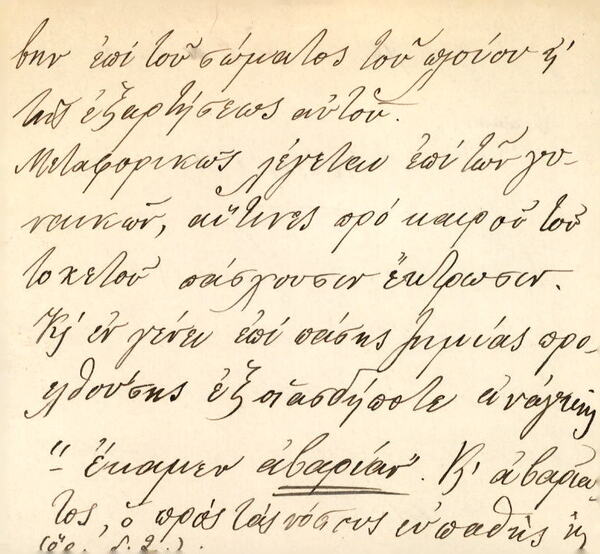 βην ἐπὶ τοῦ σώματος τοῦ πλοίου ἢ
τῆς ἐξαρτήσεως αὐτοῦ.
Μεταφορικῶς λέγεται ἐπὶ τῶν γυ-
ναικῶν, αἵτινες πρὸ καιροῦ τοῦ
τοκετοῦ πάσχουσιν ἔκτρωσιν.
Κ' ἐν γένει ἐπὶ πάσης ζημίας προ-
ελθούσης ἐξ οἱασδήποτε ἀνάγκης
"ἔκαμεν ἀβαρίαν". Κ' ἀβαριά-
τος, ὁ πρὸς τὰς νόσους εὐπαθὴς ἢ